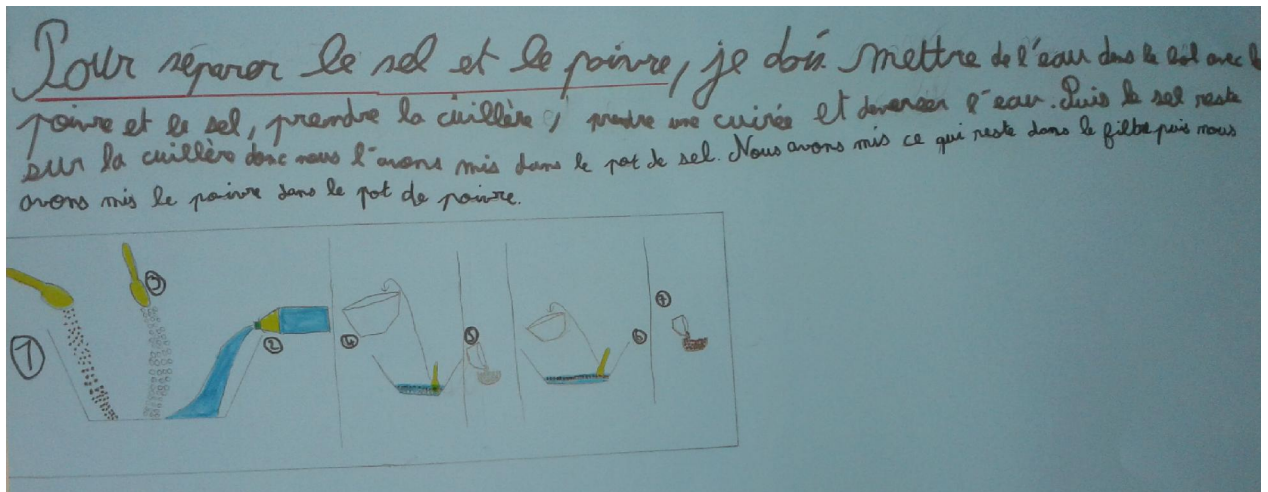 Pour séparer le sel et le poivre, je dois mettre de l'eau dans le bol avec le
poivre et le sel, prendre la cuillère, prendre une cuirée et deverser l'eau. Puis le sel reste
sur la cuillère donc nous l'avons mis dans le pot de sel. Nous avons mis ce qui reste dans le filtre puis nous
avons mis le poivre dans le pot de poivre.
1
3
2
4
5
6
7